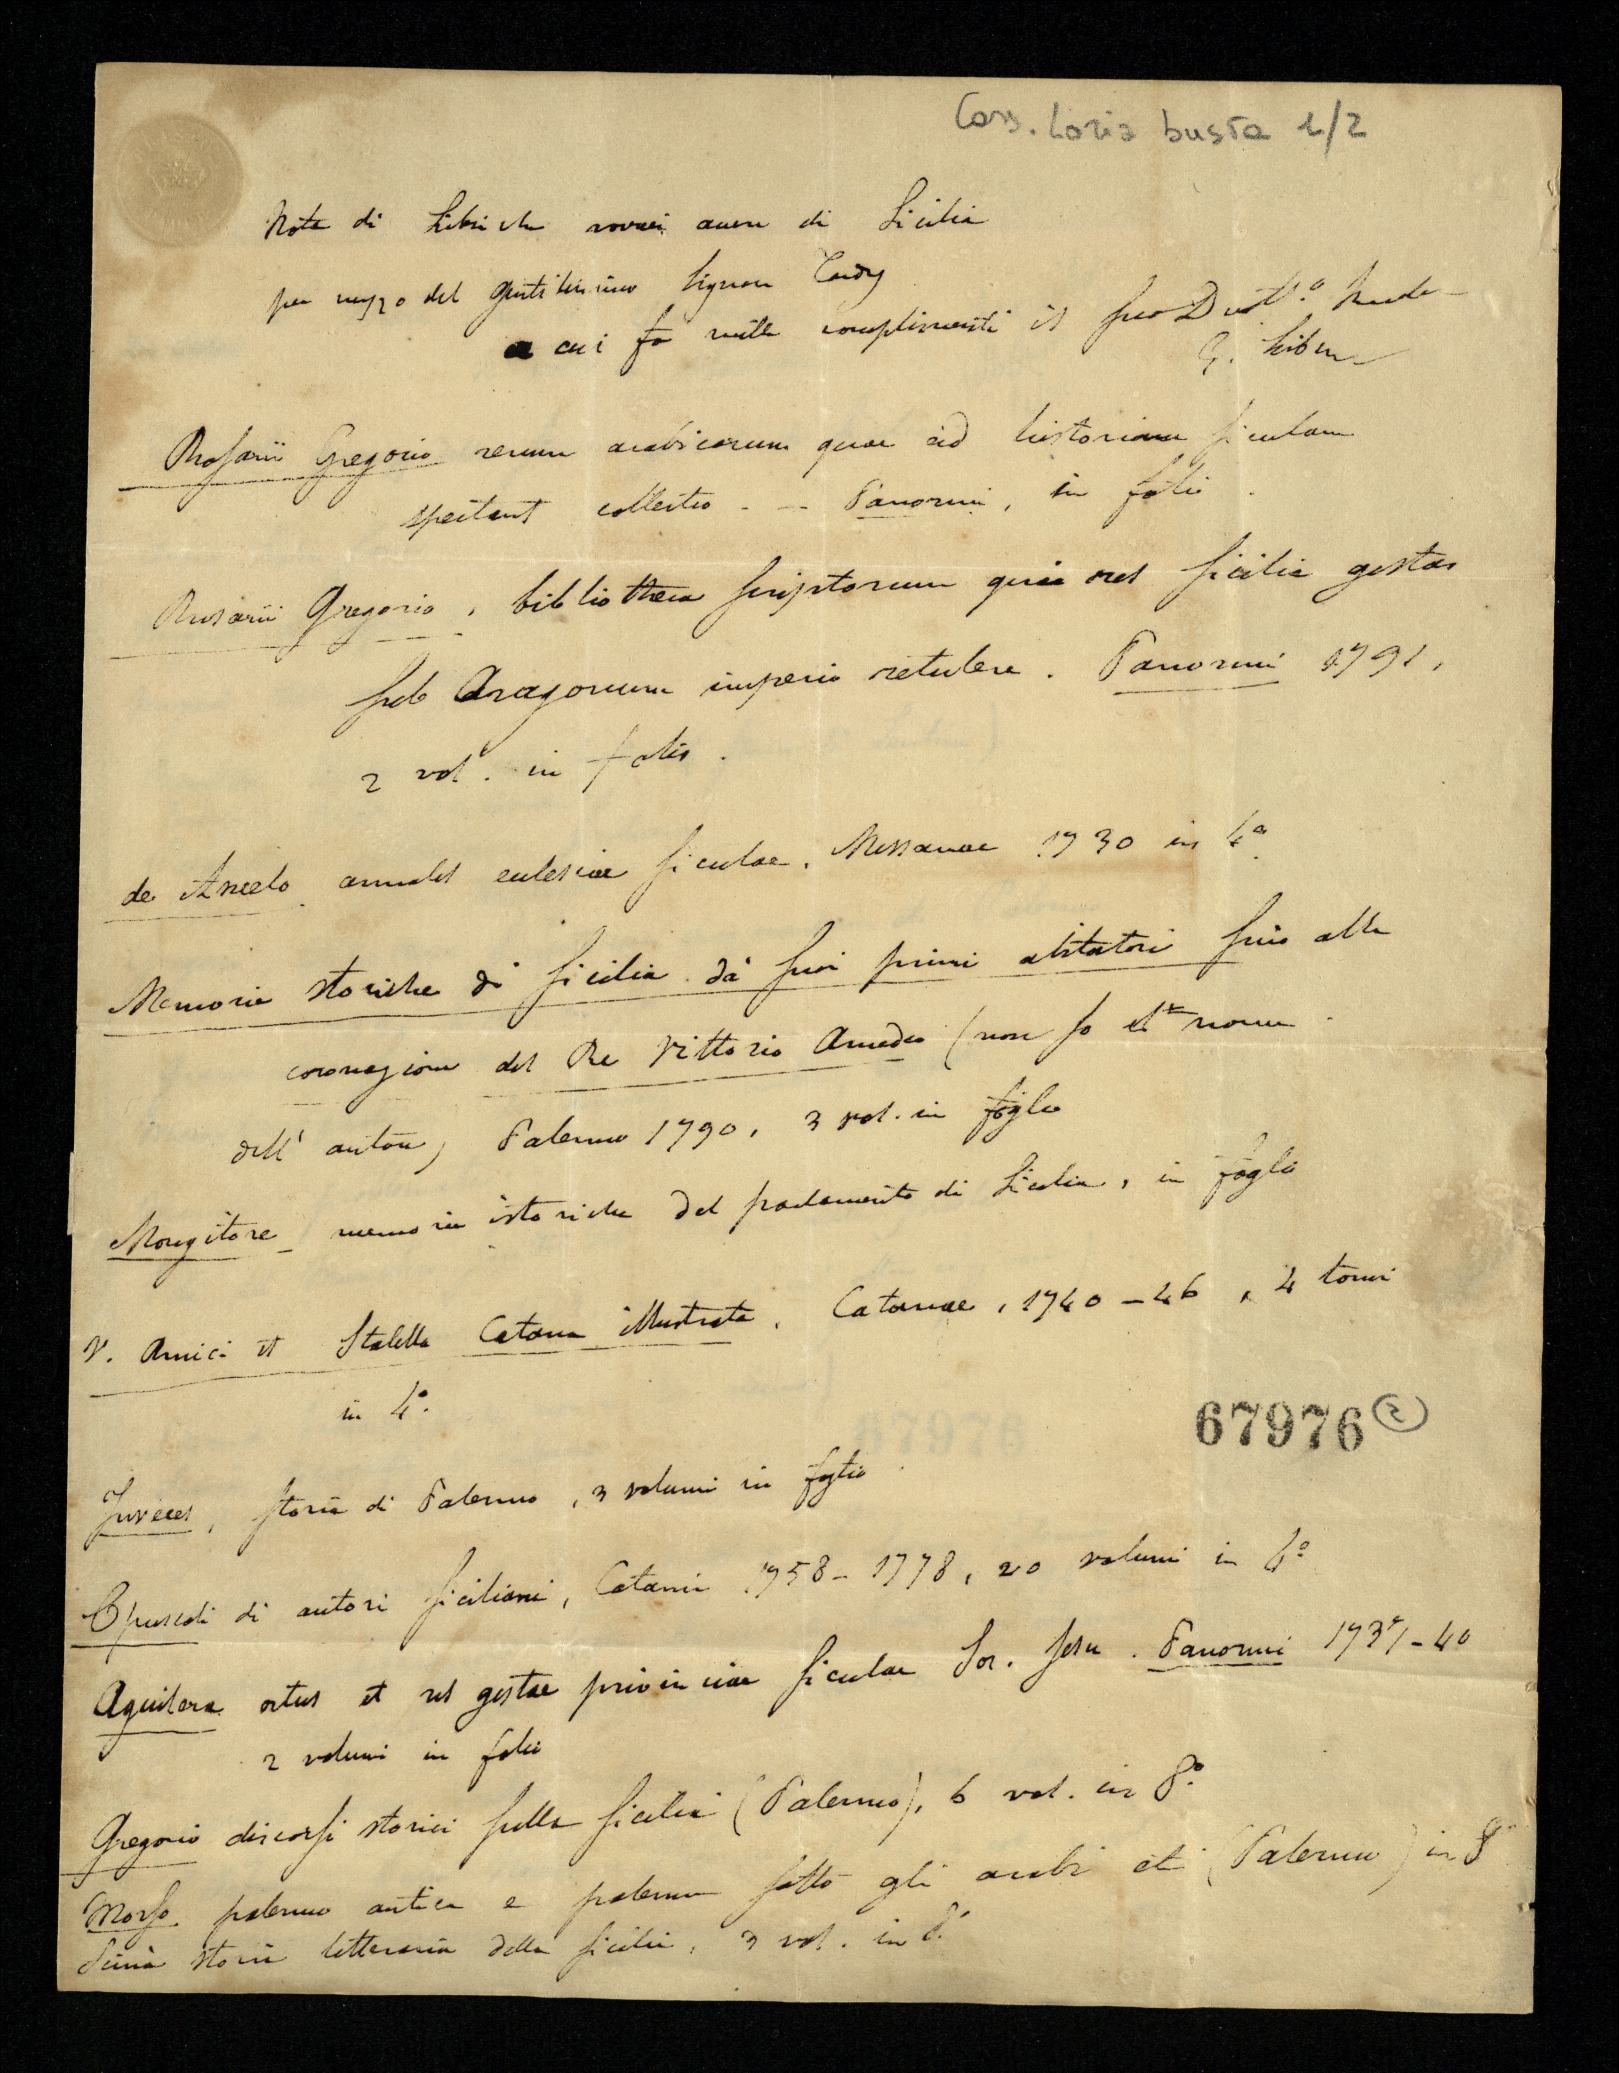 Cass. Loria busta 1/2
Nota di Libri che vorrei avere di Sicilia
per mezzo del gentilissimo Signor Tardy
a cui fa mille complimenti il suo
G. Libri
Rosarii Gregorio rerum arabicarum quae ad historiam siculam
spectant collectio - - - Panormi, in folio.
Rosarii Gregorio, bibliotheca scriptorum qui res Sicilia gestas
sub Aragonum imperio retulere. Panormi 1791,
2 vol. in folio.
de Ancelo annales eclesiae siculae. Messanae 1730 in 4°
Memorie storiche di Sicilia da suoi primi abitatori fino alla
coronazione del Re Vittorio Amedeo (non so il nome
dell' autore) Palermo 1790, 3 vol. in foglio
Mongitore memorie istoriche del parlamento di Sicilia, in foglio
V. Amici et Statella Catana illustrata. Catanae, 1740-46, 4 tomi
in 4°.
67976 (2)
Inveges, storia di Palermo, 3 volumi in foglio
Opuscoli di autori siciliani, Catania 1758-1778, 20 volumi in 4°
Aguilera ortus et res gestae provinciae siculae Soc. Jesu. Panormi 1737-40
2 volumi in folio
Gregorio discorsi storici sulla Sicilia (Palermo), 6 vol. in 8°.
Morso palermo antica e palermo sotto gli arabi et (Palermo) in 8
Scinà storia letteraria della Sicilia, 3 vol. in 8°